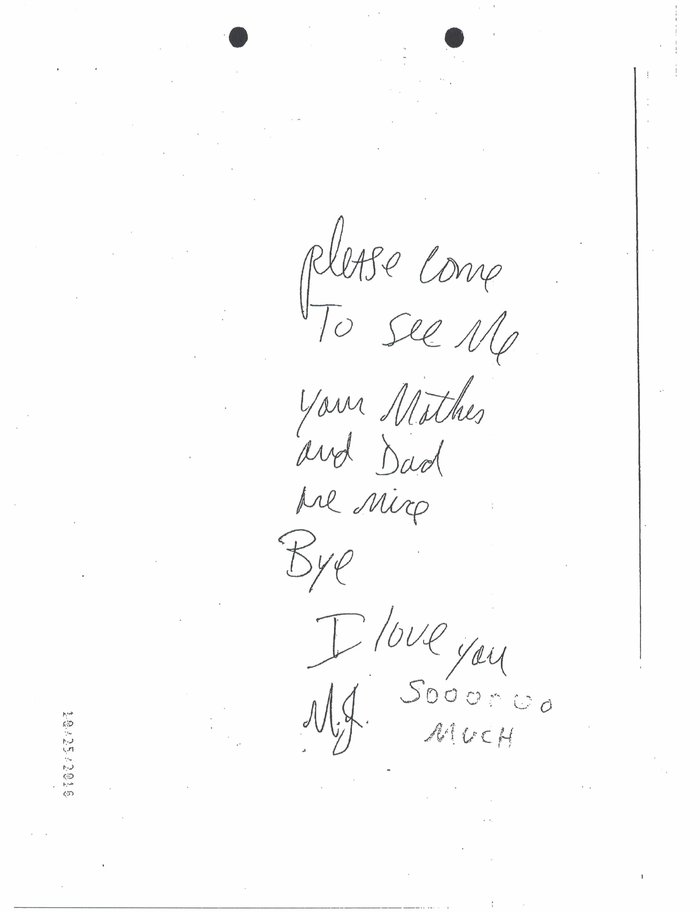 please come
To see Me
your Mother
and Dad
are nice
Bye
I love you
M.J. Soooooo
MUCH
10/25/2016